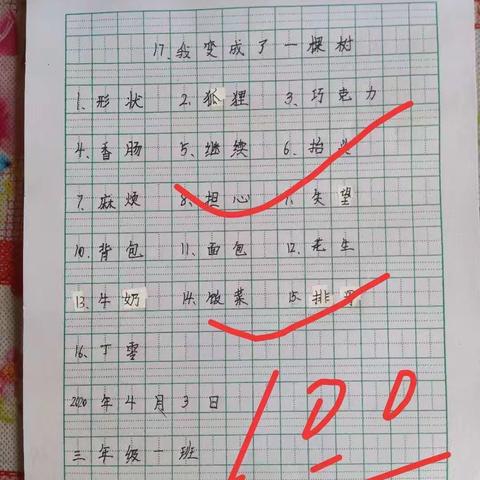 17、我变成了一棵树
1、形状 2、狐狸 3、巧克力
4、香肠 5、继续 6、抬头
7、麻烦 8、担心 9、失望
10、背包 11、面包 12、花生
13、牛奶 14、饭菜 15、排骨
16、丁零
2020年4月3日
三年级一班
100